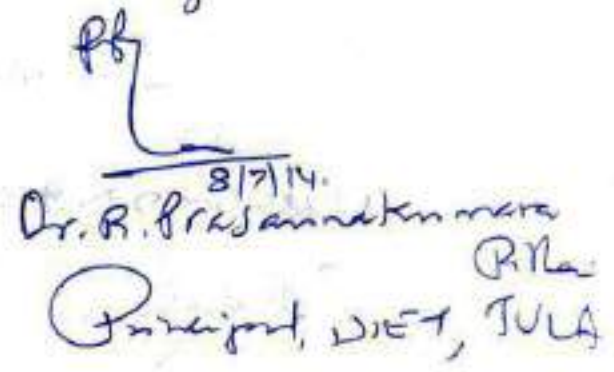 8/7/14.
Dr. R. Prasannakumara
Pillai
Principal, DIET, TVLA